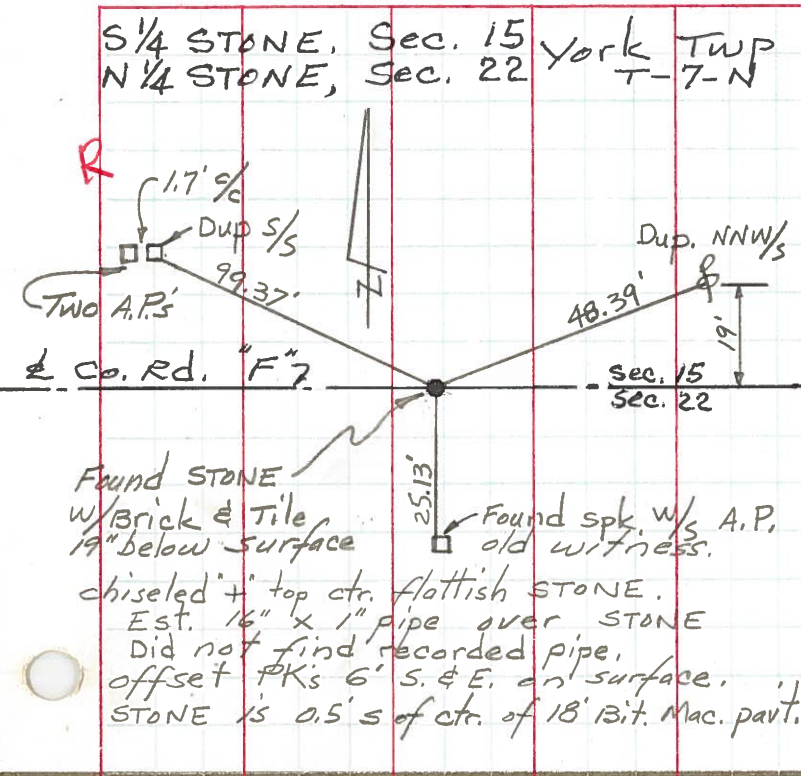 S 1/4 STONE, Sec. 15 York TWP
N 1/4 STONE, Sec. 22 T-7-N
R
1.7' c/c
Dup S/S
Dup. NNW/S
Two A.P.'s
99.37'
N
48.39'
19'
℄ Co. Rd. "F"7
Sec. 15
Sec. 22
Found STONE
W/Brick & Tile
19" below surface
25.13'
Found spk. W/s A.P.
old witness.
chiseled "+" top ctr. flattish STONE.
Est. 16" x 1" pipe over STONE
Did not find recorded pipe.
offset PK's 6' S. & E. on surface.
STONE is 0.5' s of ctr. of 18' Bit. Mac. pavt.